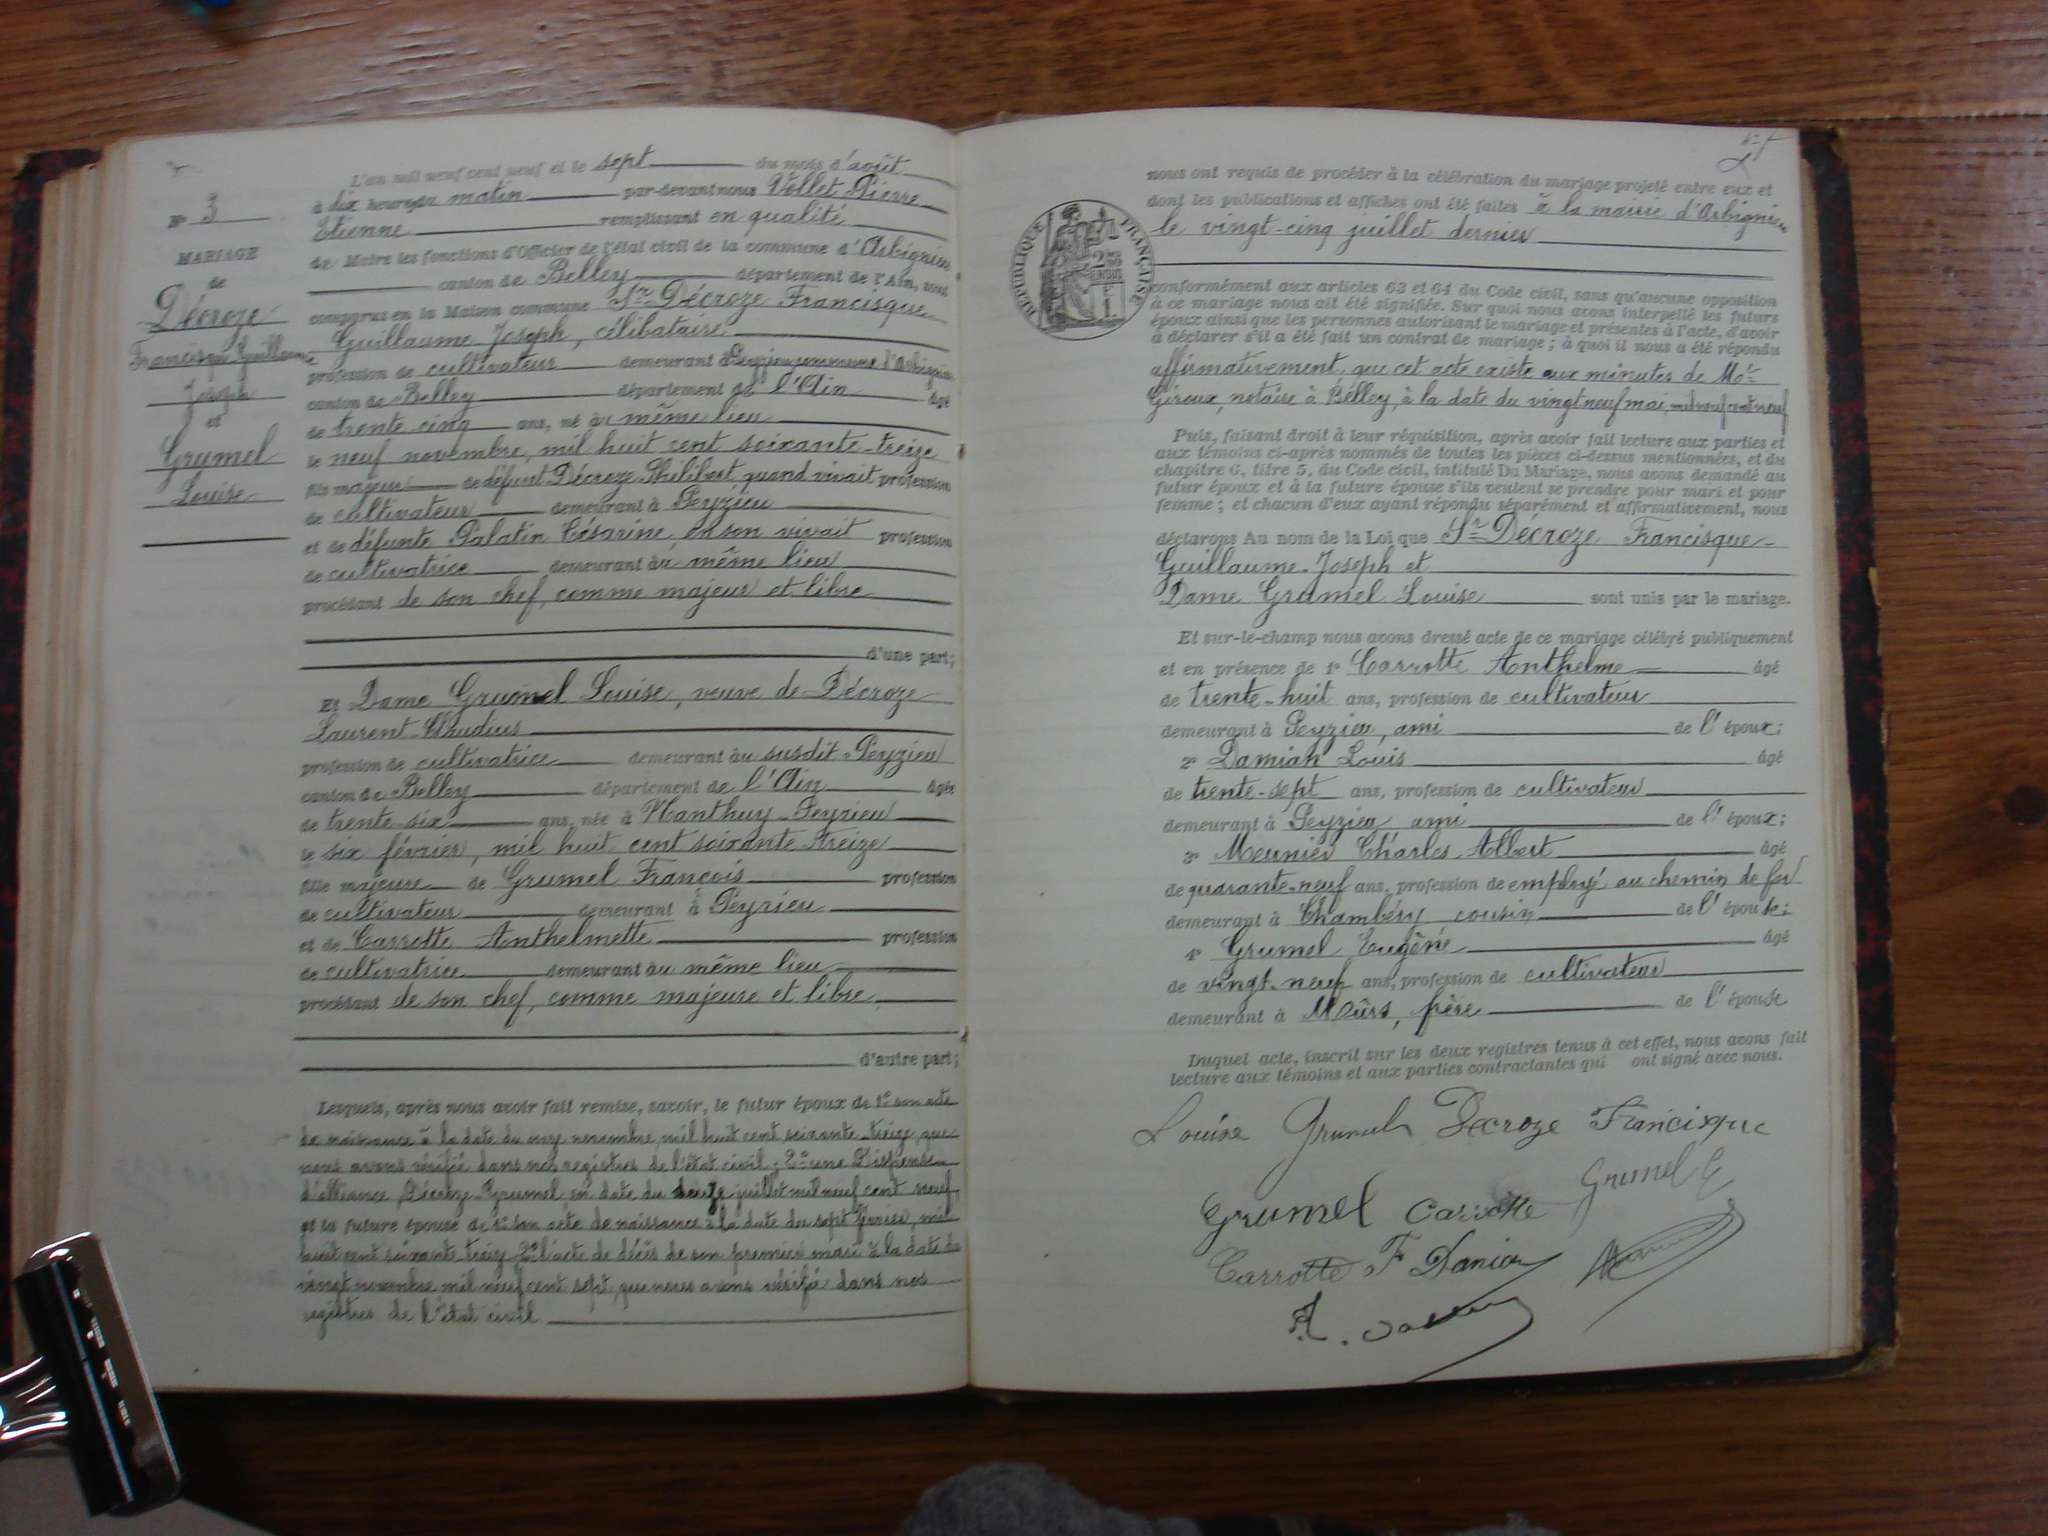 N° 3
MARIAGE
de
Décroze
Francisque Guillaume
Joseph
et
Grumel
Louise
L'an mil neuf cent neuf et le sept du mois d'août
à dix heures du matin par-devant nous Vollet Pierre
Etienne remplissant en qualité
de Maire les fonctions d'Officier de l'état civil de la commune d'Arbignieu
canton de Belley département de l'Ain, sont
comparus en la Maison commune Sr Décroze Francisque
Guillaume Joseph, célibataire
profession de cultivateur demeurant à Peyzieu commune d'Arbignieu
canton de Belley département de l'Ain âgé
de trente cinq ans, né au même lieu
le neuf novembre, mil huit cent soixante-treize
fils majeur de défunt Décroze Philibert quand vivait profession
de cultivateur demeurant à Peyzieu
et de défunte Palatin Césarine, en son vivait profession
de cultivatrice demeurant au même lieu
procédant de son chef, comme majeur et libre
d'une part;
Et Dame Grumel Louise, veuve de Décroze
Laurent-Claudius
profession de cultivatrice demeurant au susdit Peyzieu
canton de Belley département de l'Ain âgée
de trente six ans, née à Nanthuy-Peyrieu
le six février, mil huit cent soixante treize
fille majeure de Grumel François profession
de cultivateur demeurant à Peyrieu
et de Carrotte Anthelmette profession
de cultivatrice demeurant au même lieu
procédant de son chef, comme majeure et libre
d'autre part;
Lesquels, après nous avoir fait remise, savoir, le futur époux de 1° son acte
de naissance à la date du neuf novembre mil huit cent soixante-treize, que
nous avons vérifié dans nos registres de l'état civil; 2° une Dispense
d'alliance Décroze-Grumel en date du juillet mil neuf cent neuf
et la future épouse de 1° son acte de naissance à la date du sept février, mil
huit cent soixante treize, 2° l'acte de décès de son premier mari à la date du
vingt novembre mil neuf cent sept, que nous avons vérifié dans nos
registres de l'état civil
nous ont requis de procéder à la célébration du mariage projeté entre eux et
dont les publications et affiches ont été faites à la mairie d'Arbignieu
le vingt-cinq juillet dernier
RÉPUBLIQUE FRANÇAISE
conformément aux articles 63 et 64 du Code civil, sans qu'aucune opposition
à ce mariage nous ait été signifiée. Sur quoi nous avons interpellé les futurs
époux ainsi que les personnes autorisant le mariage et présentes à l'acte, d'avoir
à déclarer s'il a été fait un contrat de mariage; à quoi il nous a été répondu
affirmativement que cet acte existe aux minutes de Me
Giroux, notaire à Belley, à la date du vingt neuf mai, mil neuf cent neuf
Puis, faisant droit à leur réquisition, après avoir fait lecture aux parties et
aux témoins ci-après nommés de toutes les pièces ci-dessus mentionnées, et du
chapitre 6, titre 5, du Code civil, intitulé Du Mariage, nous avons demandé au
futur époux et à la future épouse s'ils veulent se prendre pour mari et pour
femme; et chacun d'eux ayant répondu séparément et affirmativement, nous
déclarons Au nom de la Loi que Sr Décroze Francisque
Guillaume-Joseph et
Dame Grumel Louise sont unis par le mariage.
Et sur-le-champ nous avons dressé acte de ce mariage célébré publiquement
et en présence de 1° Carrotte Anthelme âgé
de trente-huit ans, profession de cultivateur
demeurant à Peyzieu, ami de l'époux;
2° Damian Louis âgé
de trente-sept ans, profession de cultivateur
demeurant à Peyzieu ami de l'époux;
3° Meunier Charles Albert âgé
de quarante-neuf ans, profession de employé au chemin de fer
demeurant à Chambéry cousin de l'épouse;
4° Grumel Eugène âgé
de vingt-neuf ans, profession de cultivateur
demeurant à Meûrs, frère de l'épouse
Duquel acte, inscrit sur les deux registres tenus à cet effet, nous avons fait
lecture aux témoins et aux parties contractantes qui ont signé avec nous.
Louise Grumel Decroze Francisque
Grumel Carrotte Grumel E
Carrotte F Damian